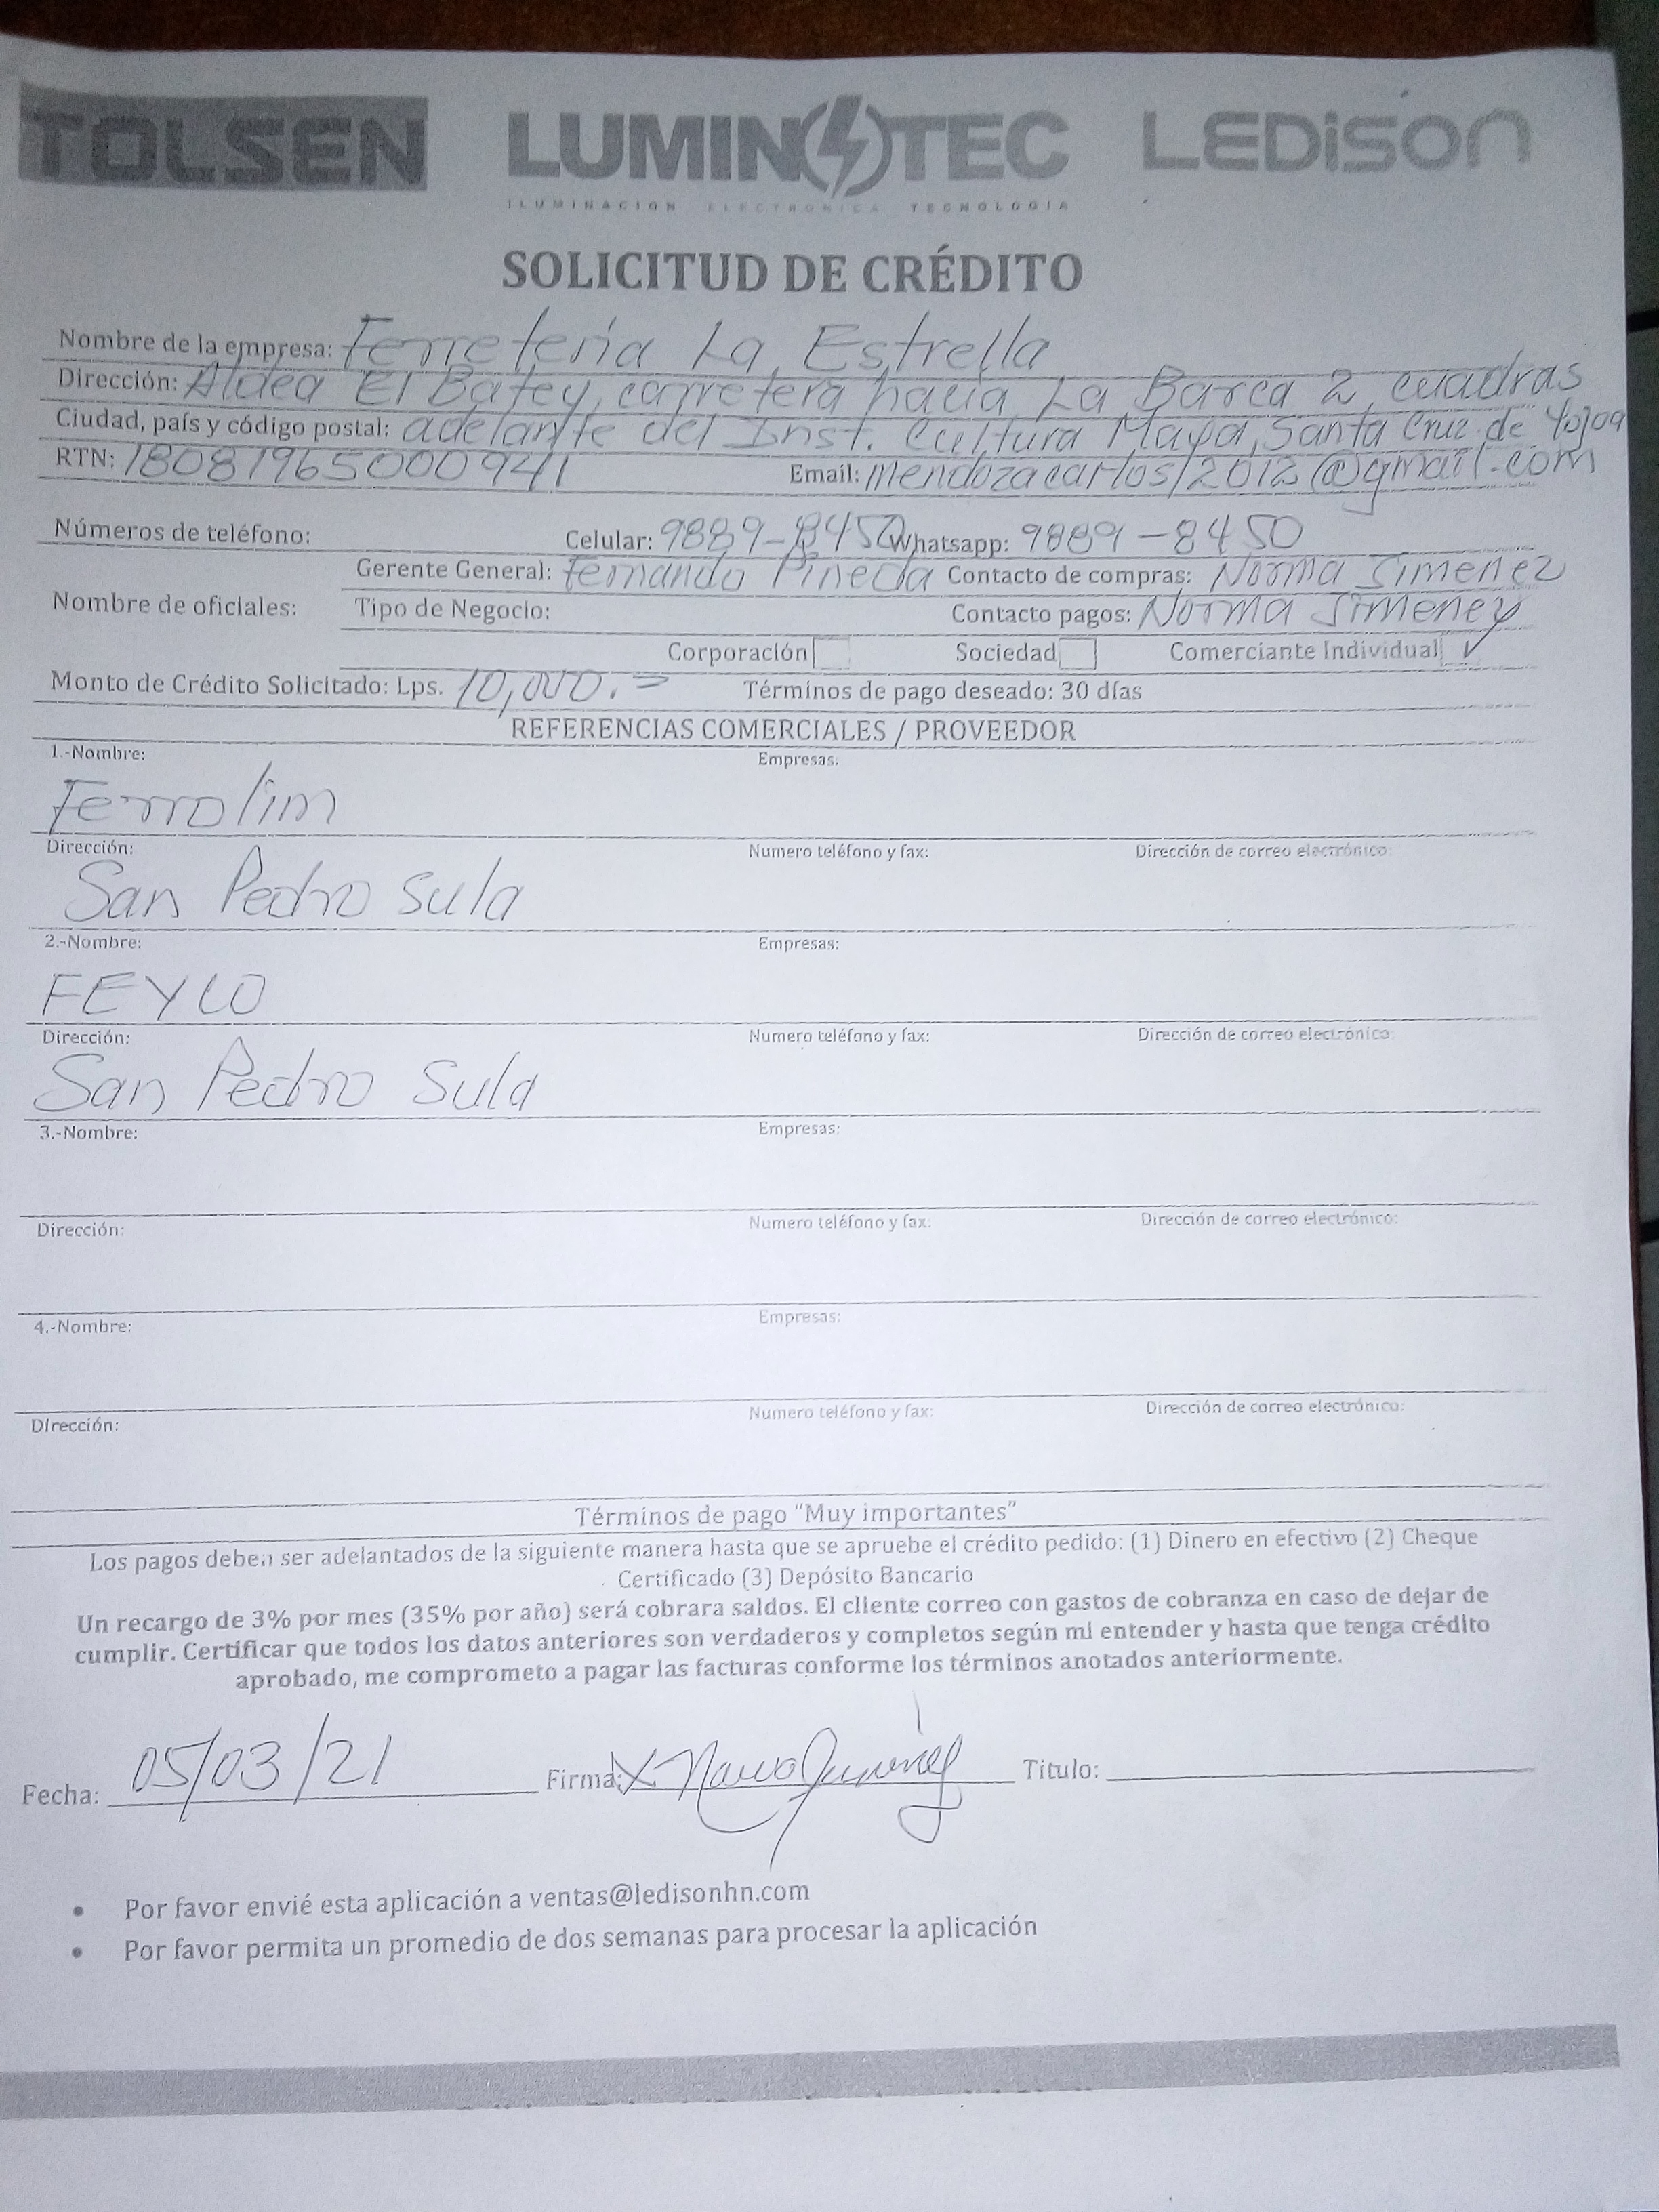 TOLSEN LUMINOTEC LEDISON
ILUMINACION ELECTRONICA TECNOLOGIA
SOLICITUD DE CRÉDITO
Nombre de la empresa: Ferretería La Estrella
Dirección: Aldea El Batey, carretera hacia La Barca 2 cuadras
Ciudad, país y código postal: adelante del Inst. Cultura Maya, Santa Cruz de Yojoa
RTN: 18081965000941 Email: mendozacarlos12012@gmail.com
Números de teléfono: Celular: 9889-8450 Whatsapp: 9889-8450
Gerente General: Fernando Pineda Contacto de compras: Norma Jimenez
Nombre de oficiales: Tipo de Negocio: Contacto pagos: Norma Jimenez
Corporación Sociedad Comerciante Individual ✓
Monto de Crédito Solicitado: Lps. 10,000.= Términos de pago deseado: 30 días
REFERENCIAS COMERCIALES / PROVEEDOR
1.-Nombre: Empresas:
Ferrolim
Dirección: Numero teléfono y fax: Dirección de correo electrónico:
San Pedro Sula
2.-Nombre: Empresas:
FEYCO
Dirección: Numero teléfono y fax: Dirección de correo electrónico:
San Pedro Sula
3.-Nombre: Empresas:
Dirección: Numero teléfono y fax: Dirección de correo electrónico:
4.-Nombre: Empresas:
Dirección: Numero teléfono y fax: Dirección de correo electrónico:
Términos de pago “Muy importantes”
Los pagos deben ser adelantados de la siguiente manera hasta que se apruebe el crédito pedido: (1) Dinero en efectivo (2) Cheque
Certificado (3) Depósito Bancario
Un recargo de 3% por mes (35% por año) será cobrara saldos. El cliente correo con gastos de cobranza en caso de dejar de
cumplir. Certificar que todos los datos anteriores son verdaderos y completos según mi entender y hasta que tenga crédito
aprobado, me comprometo a pagar las facturas conforme los términos anotados anteriormente.
Fecha: 05/03/21 Firma: X Titulo:
• Por favor envié esta aplicación a ventas@ledisonhn.com
• Por favor permita un promedio de dos semanas para procesar la aplicación